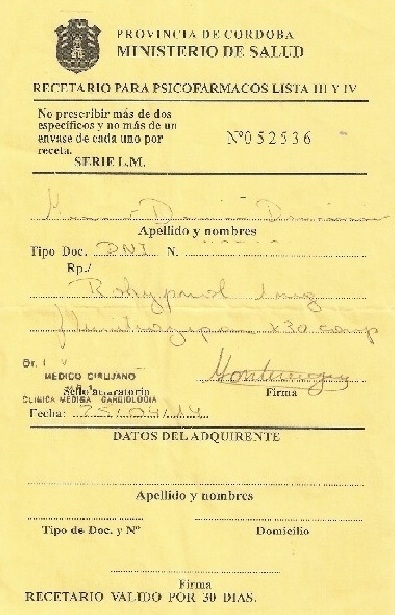 PROVINCIA DE CORDOBA
MINISTERIO DE SALUD
RECETARIO PARA PSICOFARMACOS LISTA III Y IV
No prescribir más de dos
específicos y no más de un
envase de cada uno por
receta.
Nº052536
SERIE L.M.
Apellido y nombres
Tipo Doc. DNI N.
Rp./
Rohypnol 1mg
flunitrazepam x30 comp
Dr.
MEDICO CIRUJANO
Sello aclaratorio
Firma
CLINICA MEDICA CARDIOLOGIA
Fecha: 25/04/14
DATOS DEL ADQUIRENTE
Apellido y nombres
Tipo de Doc. y Nº
Domicilio
Firma
RECETARIO VALIDO POR 30 DIAS.